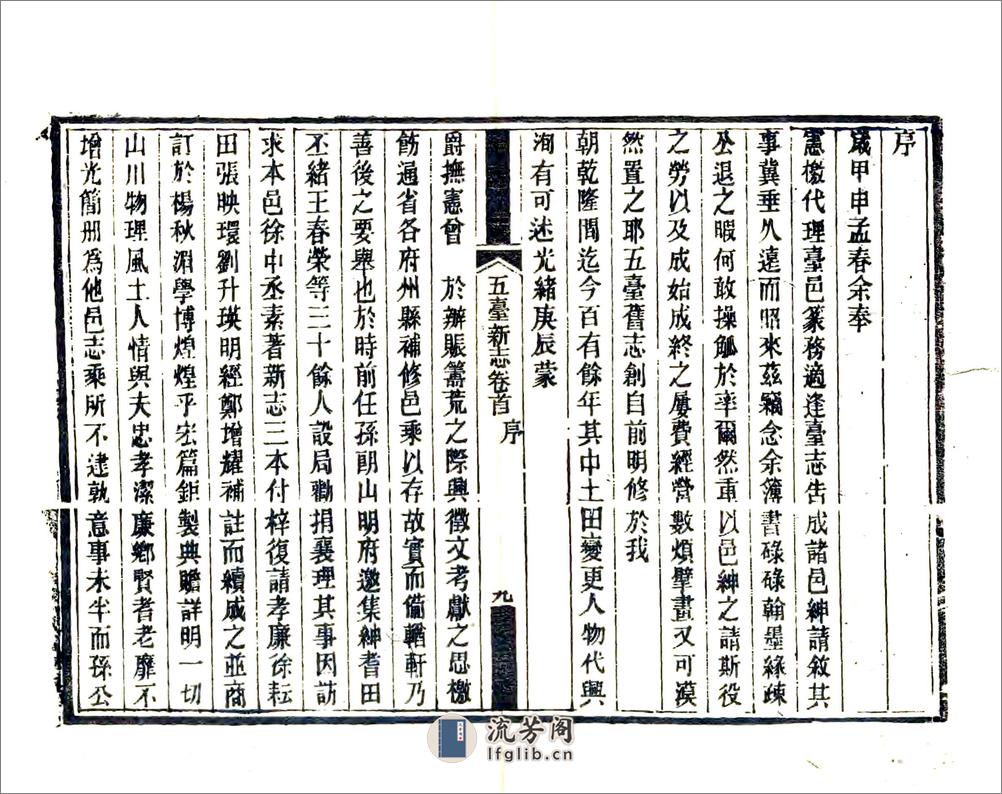 序
歲甲申孟春余奉
憲檄代理臺邑篆務適逢臺志告成諸邑紳請敘其
事冀垂久遠而昭來茲竊念余簿書碌碌翰墨緣疎
公退之暇何敢操觚於率爾然重以邑紳之請斯役
之勞以及成始成終之屢費經營數煩擘畫又可漠
然置之耶五臺舊志創自前明修於我
朝乾隆間迄今百有餘年其中土田變更人物代興
洵有可述光緒庚辰蒙
五臺新志卷首
序
九
爵撫憲曾 於辦賑籌荒之際興徵文考獻之思檄
飭通省各府州縣補修邑乘以存故實而備輶軒乃
善後之要舉也於時前任孫朗山明府邀集紳耆田
丕緒王春榮等三十餘人設局勸捐襄理其事因訪
求本邑徐中丞素著新志三本付梓復請孝廉徐耘
田張映環劉升瑛明經鄭增耀補註而續成之並商
訂於楊秋湄學博煌煌乎宏篇鉅製典贍詳明一切
山川物理風土人情與夫忠孝潔廉鄉賢耆老靡不
增光簡册為他邑志乘所不逮孰意事未半而孫公
流芳阁
lfglib.cn